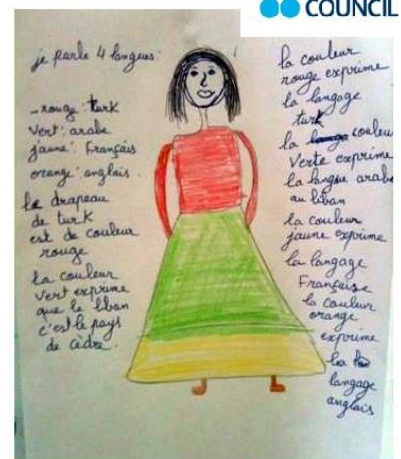 COUNCIL
je parle 4 langues:
- rouge: turk
vert: arabe
jaune: Français
orange: anglais.
le drapeau
de turk
est de couleur
rouge
la couleur
vert exprime
que le liban
c'est le pays
de cèdre.
la couleur
rouge exprime
la langage
turk
la couleur
Verte exprime
la langue arabe
au liban
la couleur
jaune exprime
la langage
Française
la couleur
orange
exprime
la
langage
anglais